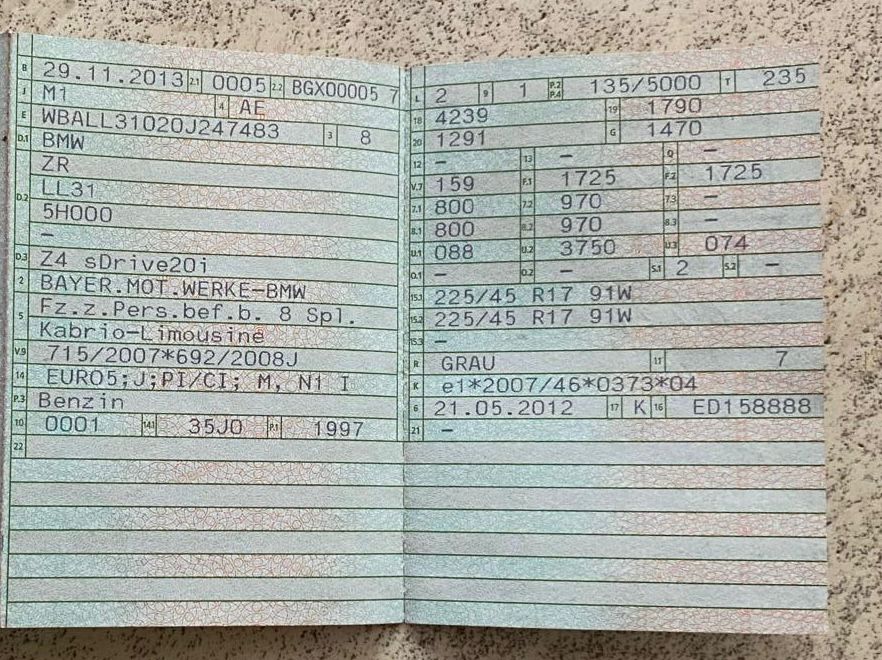 B 29.11.2013 2.1 0005 2.2 BGX00005 7
J M1 4 AE
E WBALL31020J247483 3 8
D.1 BMW
ZR
D.2 LL31
5H000
–
D.3 Z4 sDrive20i
2 BAYER.MOT.WERKE-BMW
5 Fz.z.Pers.bef.b. 8 Spl.
Kabrio-Limousine
V.9 715/2007*692/2008J
14 EURO5;J;PI/CI; M, N1 I
P.3 Benzin
10 0001 14.1 35J0 P.1 1997
22
L 2 9 1 P.2 P.4 135/5000 T 235
18 4239 19 1790
20 1291 G 1470
12 – 13 – Q –
V.7 159 F.1 1725 F.2 1725
7.1 800 7.2 970 7.3 –
8.1 800 8.2 970 8.3 –
U.1 088 U.2 3750 U.3 074
O.1 – O.2 – S.1 2 S.2 –
15.1 225/45 R17 91W
15.2 225/45 R17 91W
15.3 –
R GRAU 11 7
K e1*2007/46*0373*04
6 21.05.2012 17 K 16 ED158888
21 –